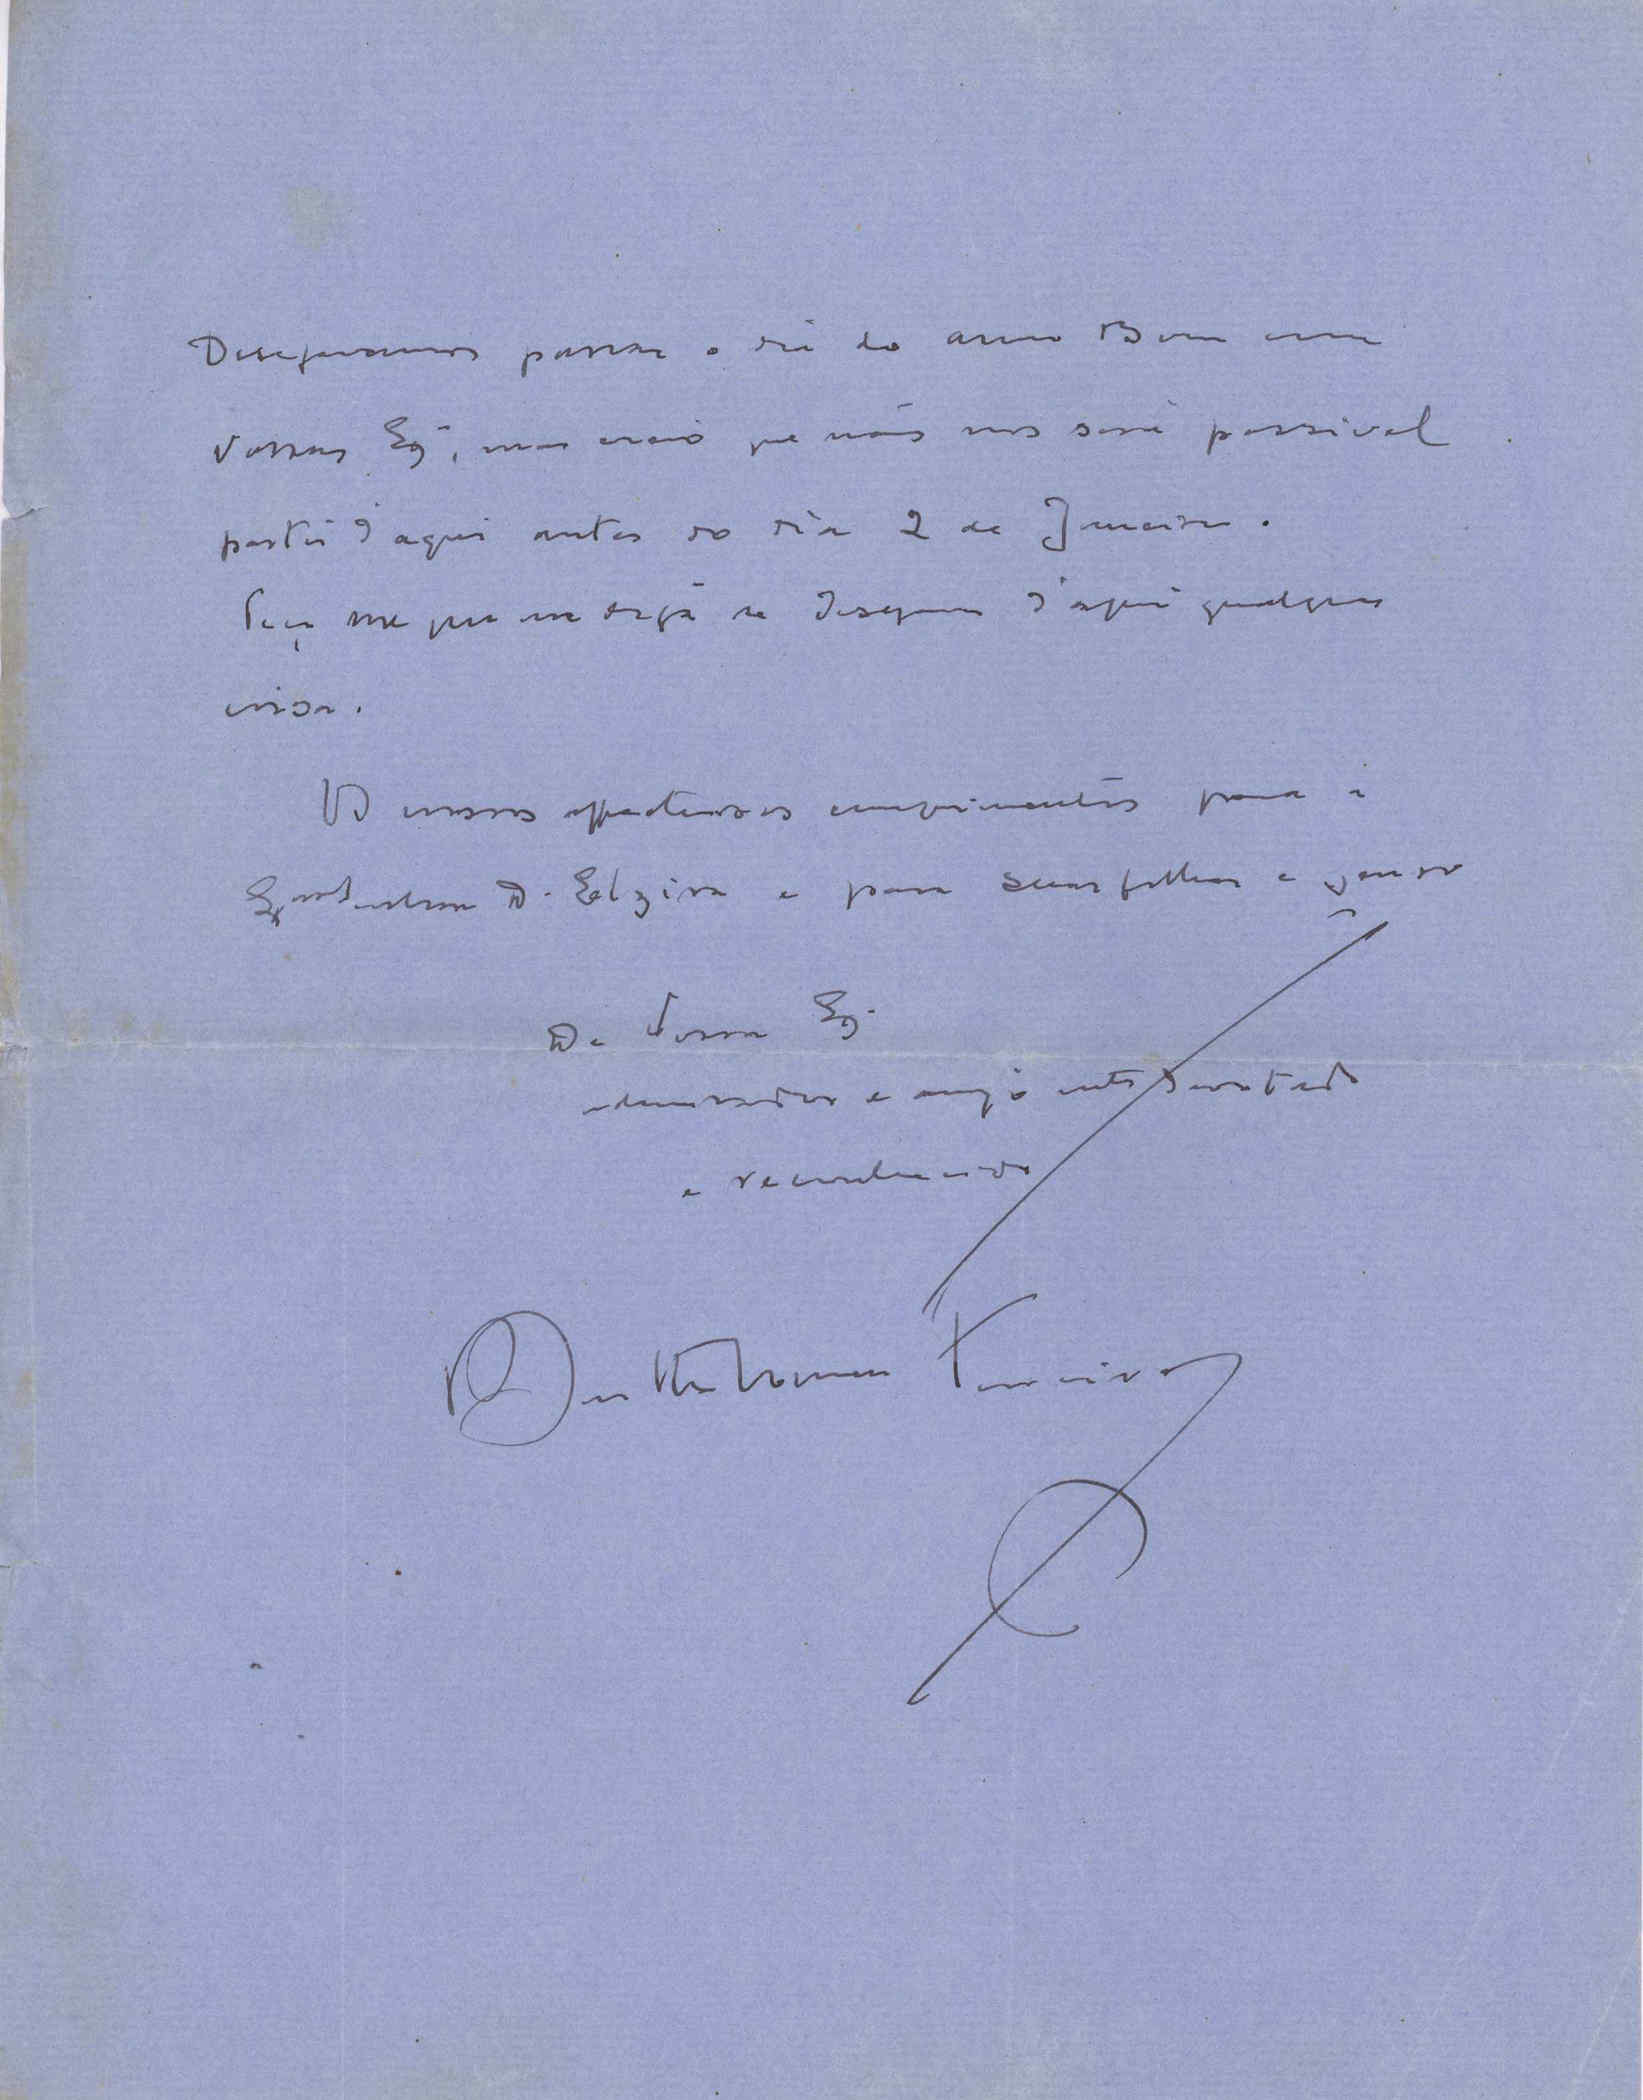 Desejavamos passar o dia do anno Bom com
Vossas Exas, mas creio que não nos será possivel
partir d'aqui antes do dia 2 de Janeiro.
Peço me que me diga se desejam d'aqui qualquer
coisa.
Os nossos affectuosos cumprimentos para a
Exma Senhora D. Elzira e para suas filhas e genro
De Vossa Exa
admirador e amigo mto devotado
e reconhecido
Bartholomeu Ferreira